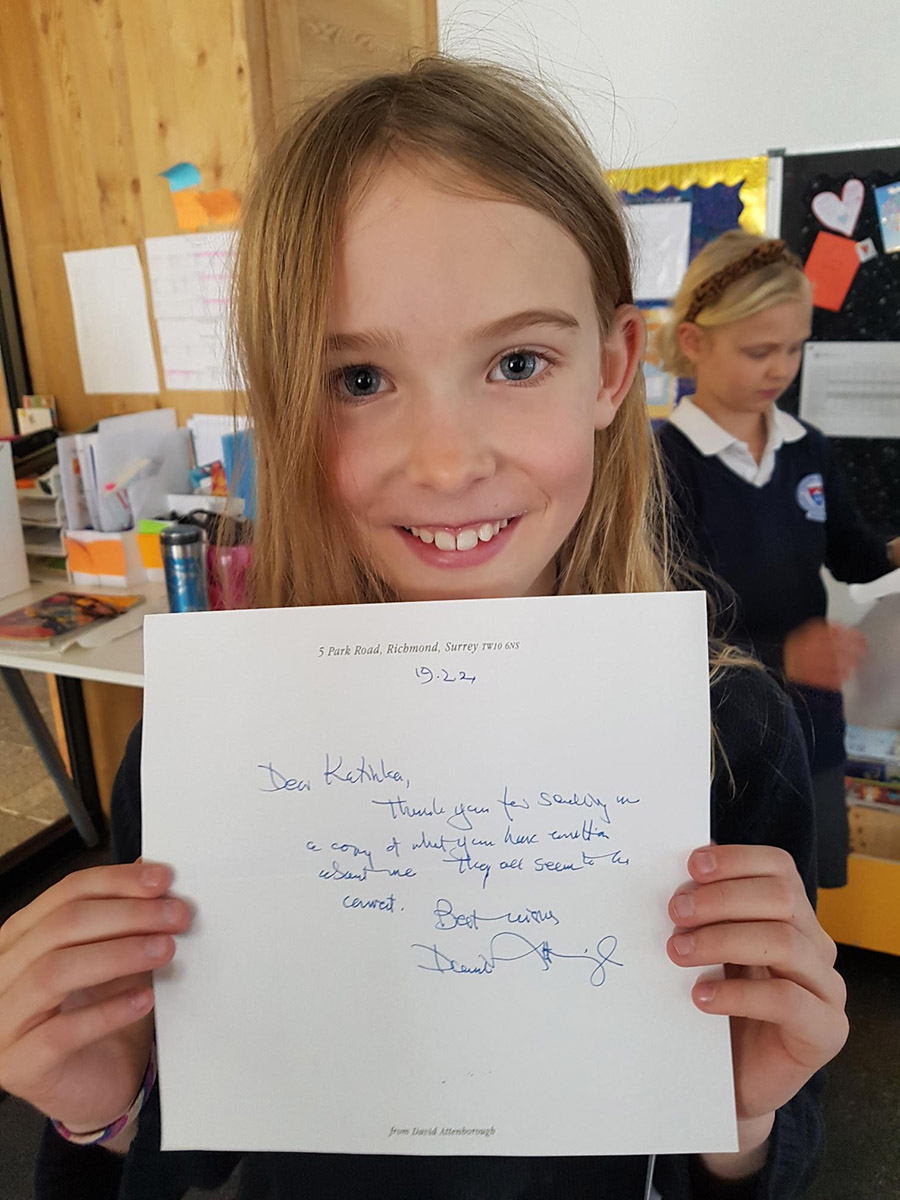 5 Park Road, Richmond, Surrey TW10 6NS
19.2.22
Dear Katinka,
Thank you for sending me
a copy of what you have written
about me They all seem to be
correct.
Best wishes
David Attenborough
from David Attenborough